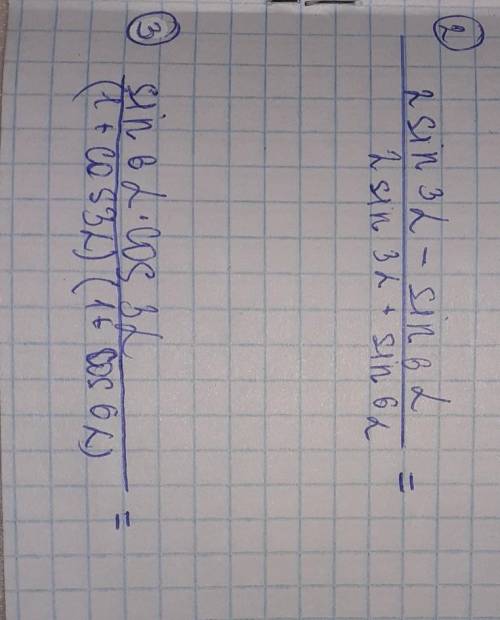 ②
2 sin 3α − sin 6α
2 sin 3α + sin 6α
=
③
sin 6α · cos 3α
(1 + cos3α) (1 + cos 6α)
=